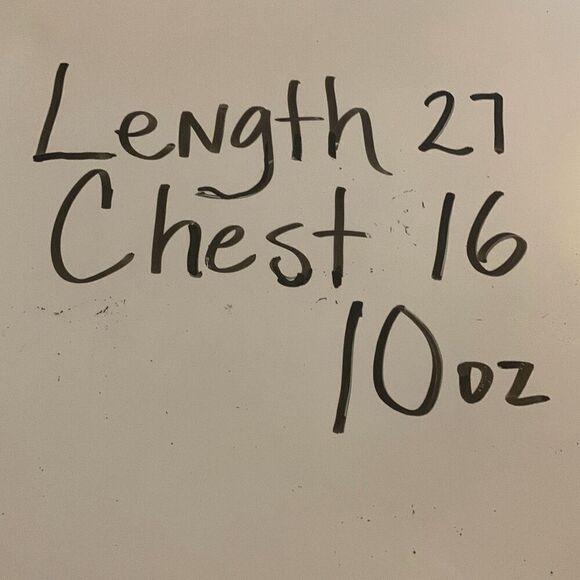 Length 27
Chest 16
10oz